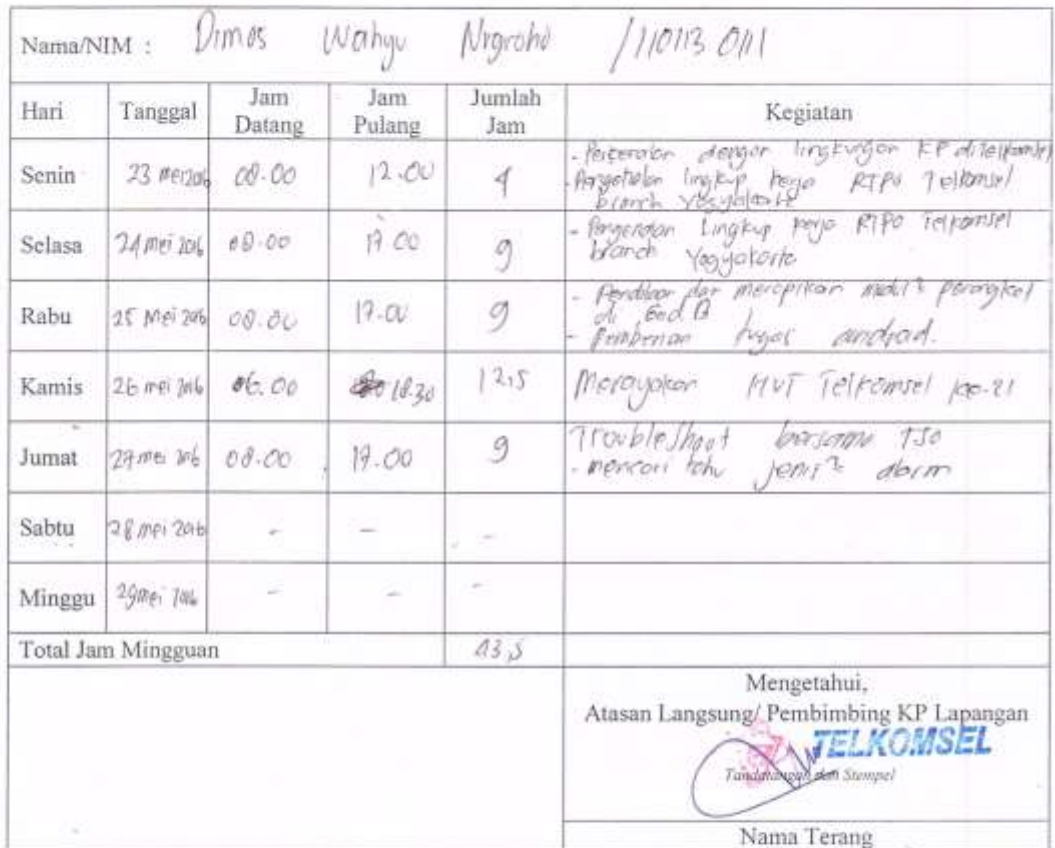 Nama/NIM : Dimas Wahyu Nugroho / 110113 0111
Hari Tanggal Jam Datang Jam Pulang Jumlah Jam Kegiatan
Senin 23 mei 2016 08.00 12.00 4
- Perkenalan dengan lingkungan KP di Telkomsel
- Pengenalan lingkup kerja RTPO Telkomsel
branch Yogyakarta
Selasa 24 mei 2016 08.00 17.00 9
- Pengenalan Lingkup kerja RTPO Telkomsel
branch Yogyakarta
Rabu 25 Mei 2016 08.00 17.00 9
- dan merapikan modul² perangkat
di Ged B
- Pemberian tugas android.
Kamis 26 mei 2016 06.00 18.30 12,5 Merayakan HUT Telkomsel ke-21
Jumat 27 mei 2016 08.00 17.00 9
Troubleshoot bersama TSO
- mencari tahu jenis² alarm
Sabtu 28 mei 2016 - - -
Minggu 29 mei 2016 - - -
Total Jam Mingguan 43,5
Mengetahui,
Atasan Langsung/ Pembimbing KP Lapangan
TELKOMSEL
Tandatangan dan Stempel
Nama Terang